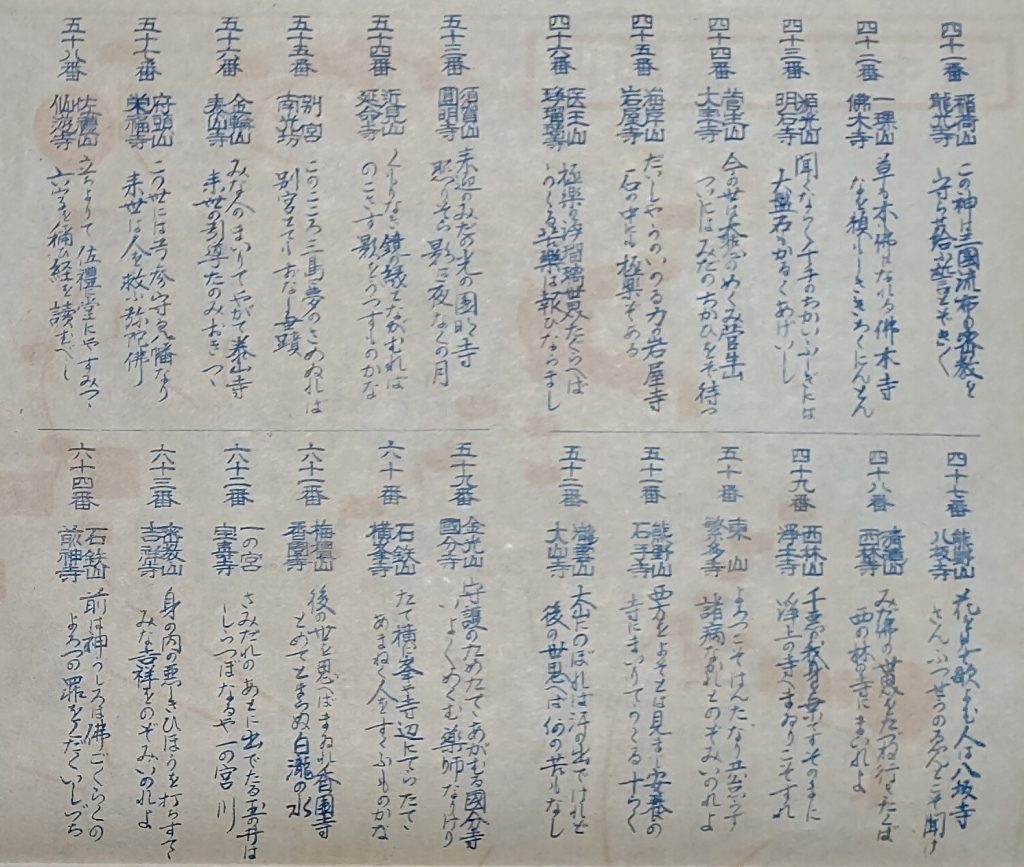 四十一番
稲荷山
龍光寺
この神は三國流布の密教を
守り給ふ誓とぞきく
四十二番
一瓈山
佛木寺
草も木も佛になれる佛木寺
なを頼もしききちくにんてん
四十三番
源光山
明石寺
聞くならく千手のちかいふしぎには
大盤石もかろくあげいし
四十四番
菅生山
大宝寺
今の世は大悲のめぐみ菅生山
ついにはみだのちかひをぞ待つ
四十五番
海岸山
岩屋寺
だいしやうのいのる力の岩屋寺
石の中にも極楽ぞある
四十六番
医王山
浄瑠璃寺
極樂の浄瑠璃世界たくらへば
うくる苦樂は報ひならまし
四十七番
熊野山
八坂寺
花を見て歌よむ人は八坂寺
さんぶつせうのゑんとこそ聞け
四十八番
清瀧山
西林寺
みだ佛の世界をたづね行きたくば
西の林の寺にまいれよ
四十九番
西林山
淨土寺
十悪の我身を棄てずそのまに
浄土の寺へまゐりこそすれ
五十番
東山
繁多寺
よろづこそはんたなり共怠らず
諸病なかれとのぞみいのれよ
五十一番
熊野山
石手寺
西方をよそとは見まじ安養の
寺にまいりてうくる十らく
五十二番
瀧雲山
太山寺
太山にのぼれば汗の出でけれど
後の世思へば何の苦もなし
五十三番
須賀山
圓明寺
来迎のみだの光の圓明寺
照りそふ影は夜なくの月
五十四番
近見山
延命寺
くもりなき鏡の縁とながむれば
のこさず影をうつすものかな
五十五番
別宮
南光坊
このところ三島に夢のさめぬれば
別宮とてもおなじ垂蹟
五十六番
金輪山
泰山寺
みな人のまいりてやがて泰山寺
来世の引導たのみおきつゝ
五十七番
府頭山
栄福寺
この世には弓矢守る八幡なり
来世は人を救ふ弥陀佛
五十八番
佐禮山
仙遊寺
立ちよりて佐禮堂にやすみつゝ
六字を稱ひ経を讀むべし
五十九番
金光山
國分寺
守護のためたてゝあがむる國分寺
いよいよめぐむ薬師なりけり
六十番
石鉄山
横峯寺
たて横に峯や寺辺にてらたてゝ
あまねく人をすくふものかな
六十一番
栴檀山
香園寺
後の世を思へばまゐれ香園寺
とめてとまらぬ白瀧の水
六十二番
一の宮
宝寿寺
さみだれのあとに出でたる玉の井は
しらつぼなるや一の宮川
六十三番
密教山
吉祥寺
身の内の悪しきひほうを打ちすてゝ
みな吉祥をのぞみいのれよ
六十四番
石鉄山
前神寺
前は神うしろは佛ごくらくの
よろづの罪をくだくいしづち